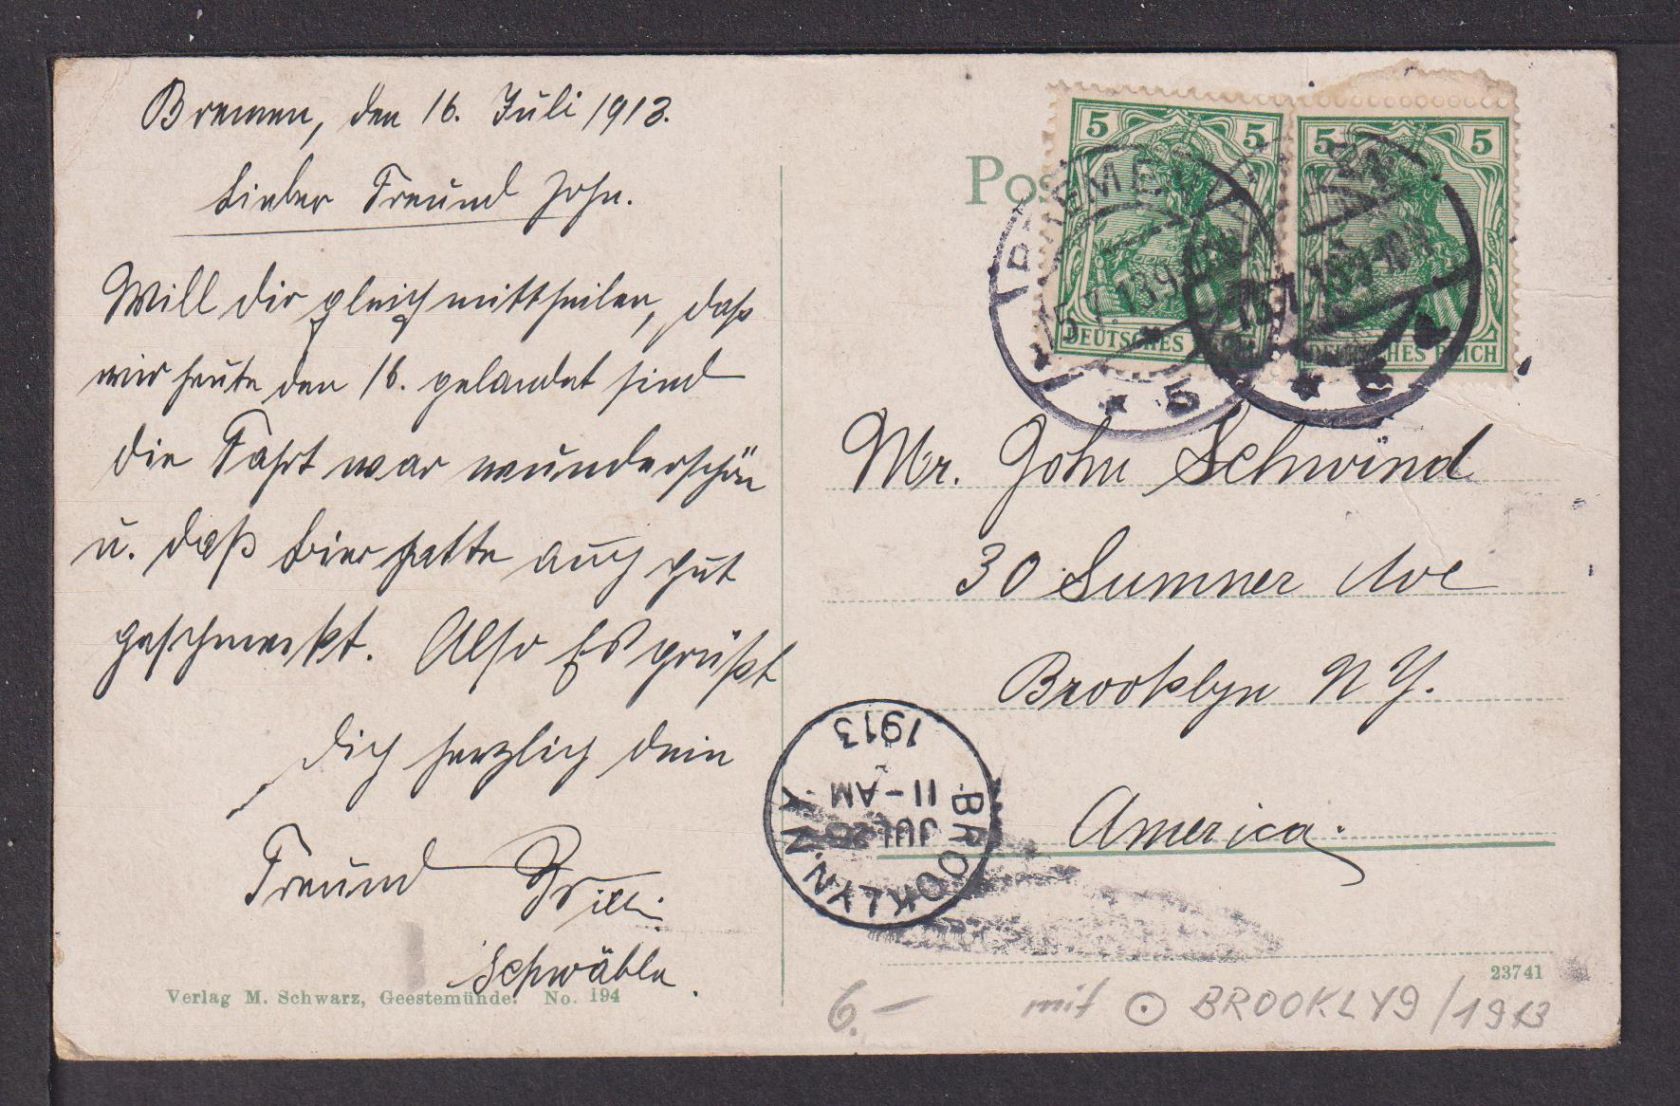 Bremen, den 16. Juli 1913.
Lieber Freund John.
Will dir gleich mittheilen, daß
wir heute den 16. gelandet sind
die Fahrt war wunderschön
u. daß Bier hatte auch gut
geschmeckt. Also Es grüßt
dich herzlich dein
Freund Willi
Schwäble.
Verlag M. Schwarz, Geestemünde. No. 194
5 5
5 5
DEUTSCHES
DEUTSCHES REICH
BREMEN
Mr. John Schwind
30 Sumner Ave
Brooklyn N Y.
America.
BROOKLYN, N.Y.
JUL
11-AM
1913
23741
6.– mit ⊙ BROOKLY9/1913